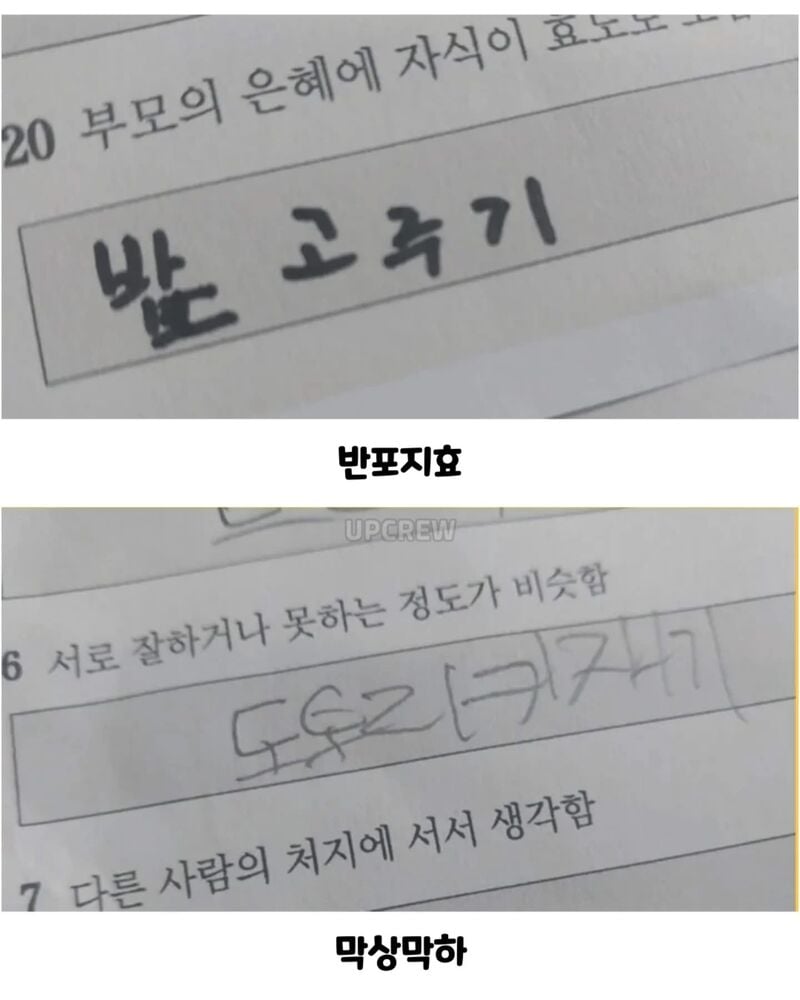 20 부모의 은혜에 자식이 효도로
밥 고추기
반포지효
UPCREW
6 서로 잘하거나 못하는 정도가 비슷함
도토리 키재기
7 다른 사람의 처지에 서서 생각함
막상막하